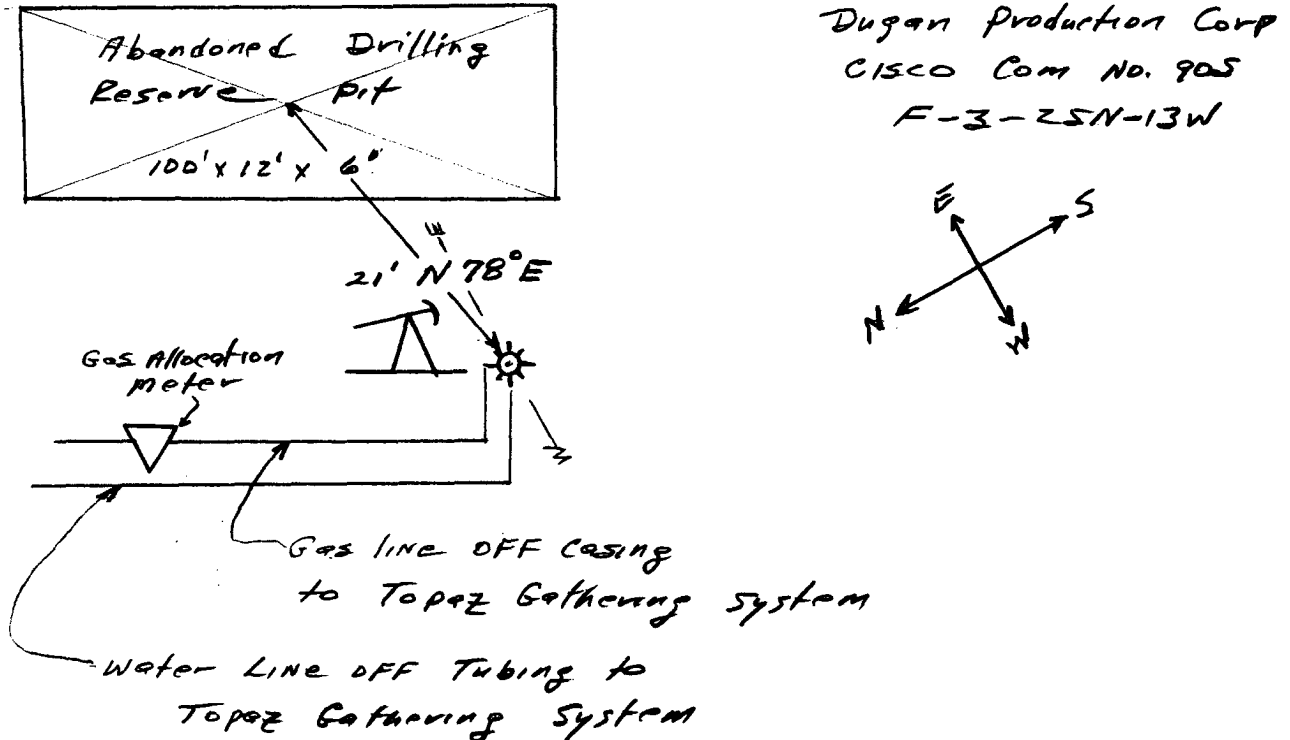 Abandoned Drilling
Reserve Pit
100' x 12' x 6'
Dugan Production Corp
Cisco Com No. 90S
F-3-25N-13W
E
S
N
W
E
21' N 78° E
Gas Allocation
meter
Gas line OFF Casing
to Topaz Gathering System
Water Line OFF Tubing to
Topaz Gathering System